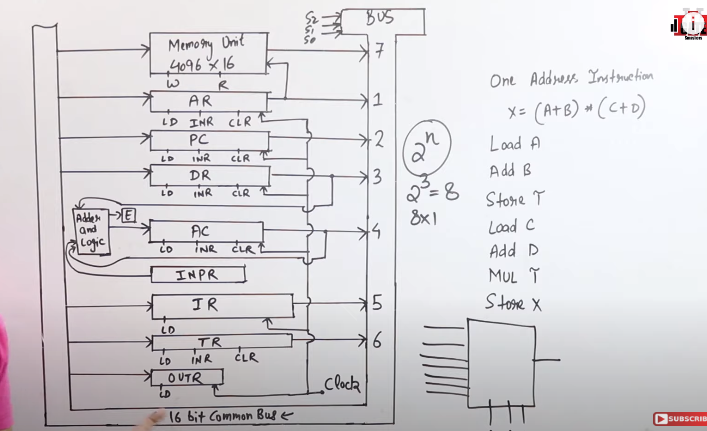 S2
S1
S0
BUS
Memory Unit
4096 X 16
W R
7
AR
1
LD INR CLR
PC
2
LD INR CLR
DR
3
LD INR CLR
Adder
and
Logic
E
AC
4
LD INR CLR
INPR
IR
5
LD
TR
6
LD INR CLR
OUTR
LD
Clock
16 bit Common Bus
2^n
2^3 = 8
8x1
One Address Instruction
X = (A+B) * (C+D)
Load A
Add B
Store T
Load C
Add D
MUL T
Store X
SUBSCRIBE